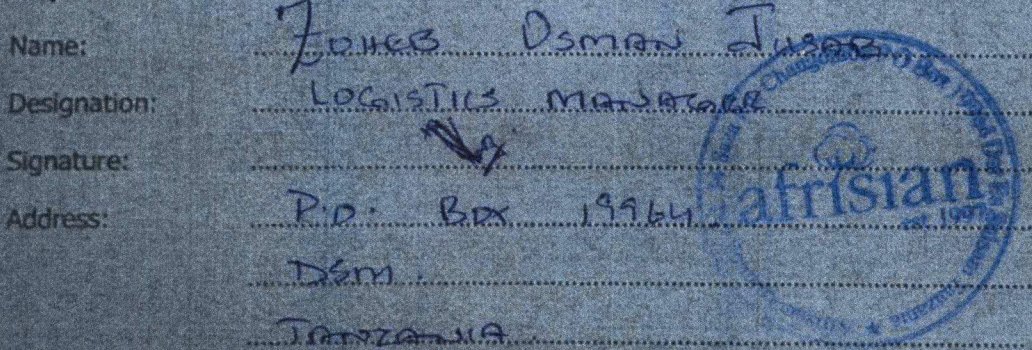 Name: ZOHEB OSMAN JUSAB
Designation: LOGISTICS MANAGER
Signature:
Address: P.O. Box 19964
DSM.
TANZANIA.
afrisian
est 1997